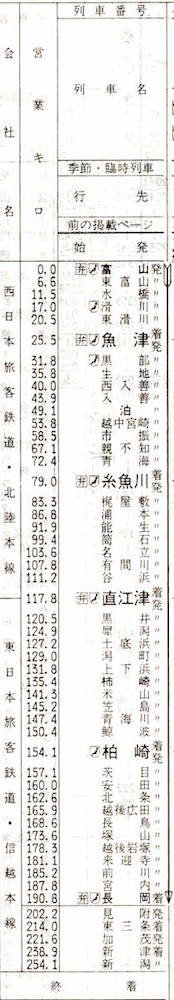 列車番号
会社名
営業キロ
列車名
季節・臨時列車
行先
前の掲載ページ
始発
西日本旅客鉄道・北陸本線
0.0 弁 富山 発
6.6 東富山
11.5 水橋
17.0 滑川
20.5 東滑川
25.5 弁 魚津 着発
31.8 黒部
35.8 生地
40.0 西入善
43.9 入善
49.1 泊
53.8 越中宮崎
58.5 市振
67.1 親不知
72.4 青海
79.0 弁 糸魚川 着発
83.3 梶屋敷
86.8 浦本
91.9 能生
99.4 筒石
103.6 名立
107.8 有間川
111.2 谷浜
117.8 弁 直江津 着発
東日本旅客鉄道・信越本線
120.5 黒井
124.9 犀潟
127.2 土底浜
129.0 潟町
131.8 上下浜
135.4 柿崎
141.3 米山
145.2 笠島
147.4 青海川
150.4 鯨波
154.1 柏崎 着発
157.1 茨目
160.0 安田
162.6 北条
165.8 越後広田
168.6 長鳥
173.6 塚山
178.3 越後岩塚
181.1 来迎寺
185.2 前川
187.8 宮内
190.8 弁 長岡 着発
202.2 見附 発
214.0 東三条 着
221.6 加茂 発
238.9 新津 着
254.1 新潟 着
終着